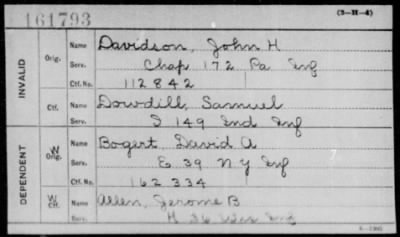 161793
(3-H-4)
INVALID
Orig. Name Davidson, John H
Serv. Chap. 172 Pa Inf
Ctf. No. 112842
Ctf. Name Dowdill, Samuel
Serv. I 149 Ind Inf
DEPENDENT
W Orig. Name Bogert, David A
Serv. E 39 N Y Inf
Ctf. No. 162334
W Ctf. Name Allen, Jerome B
Serv. H 36 Wis Inf